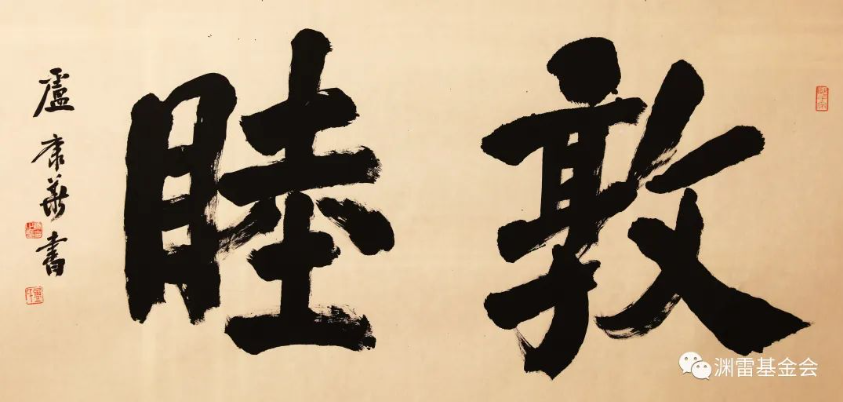 敦睦
盧康華書
渊雷基金会